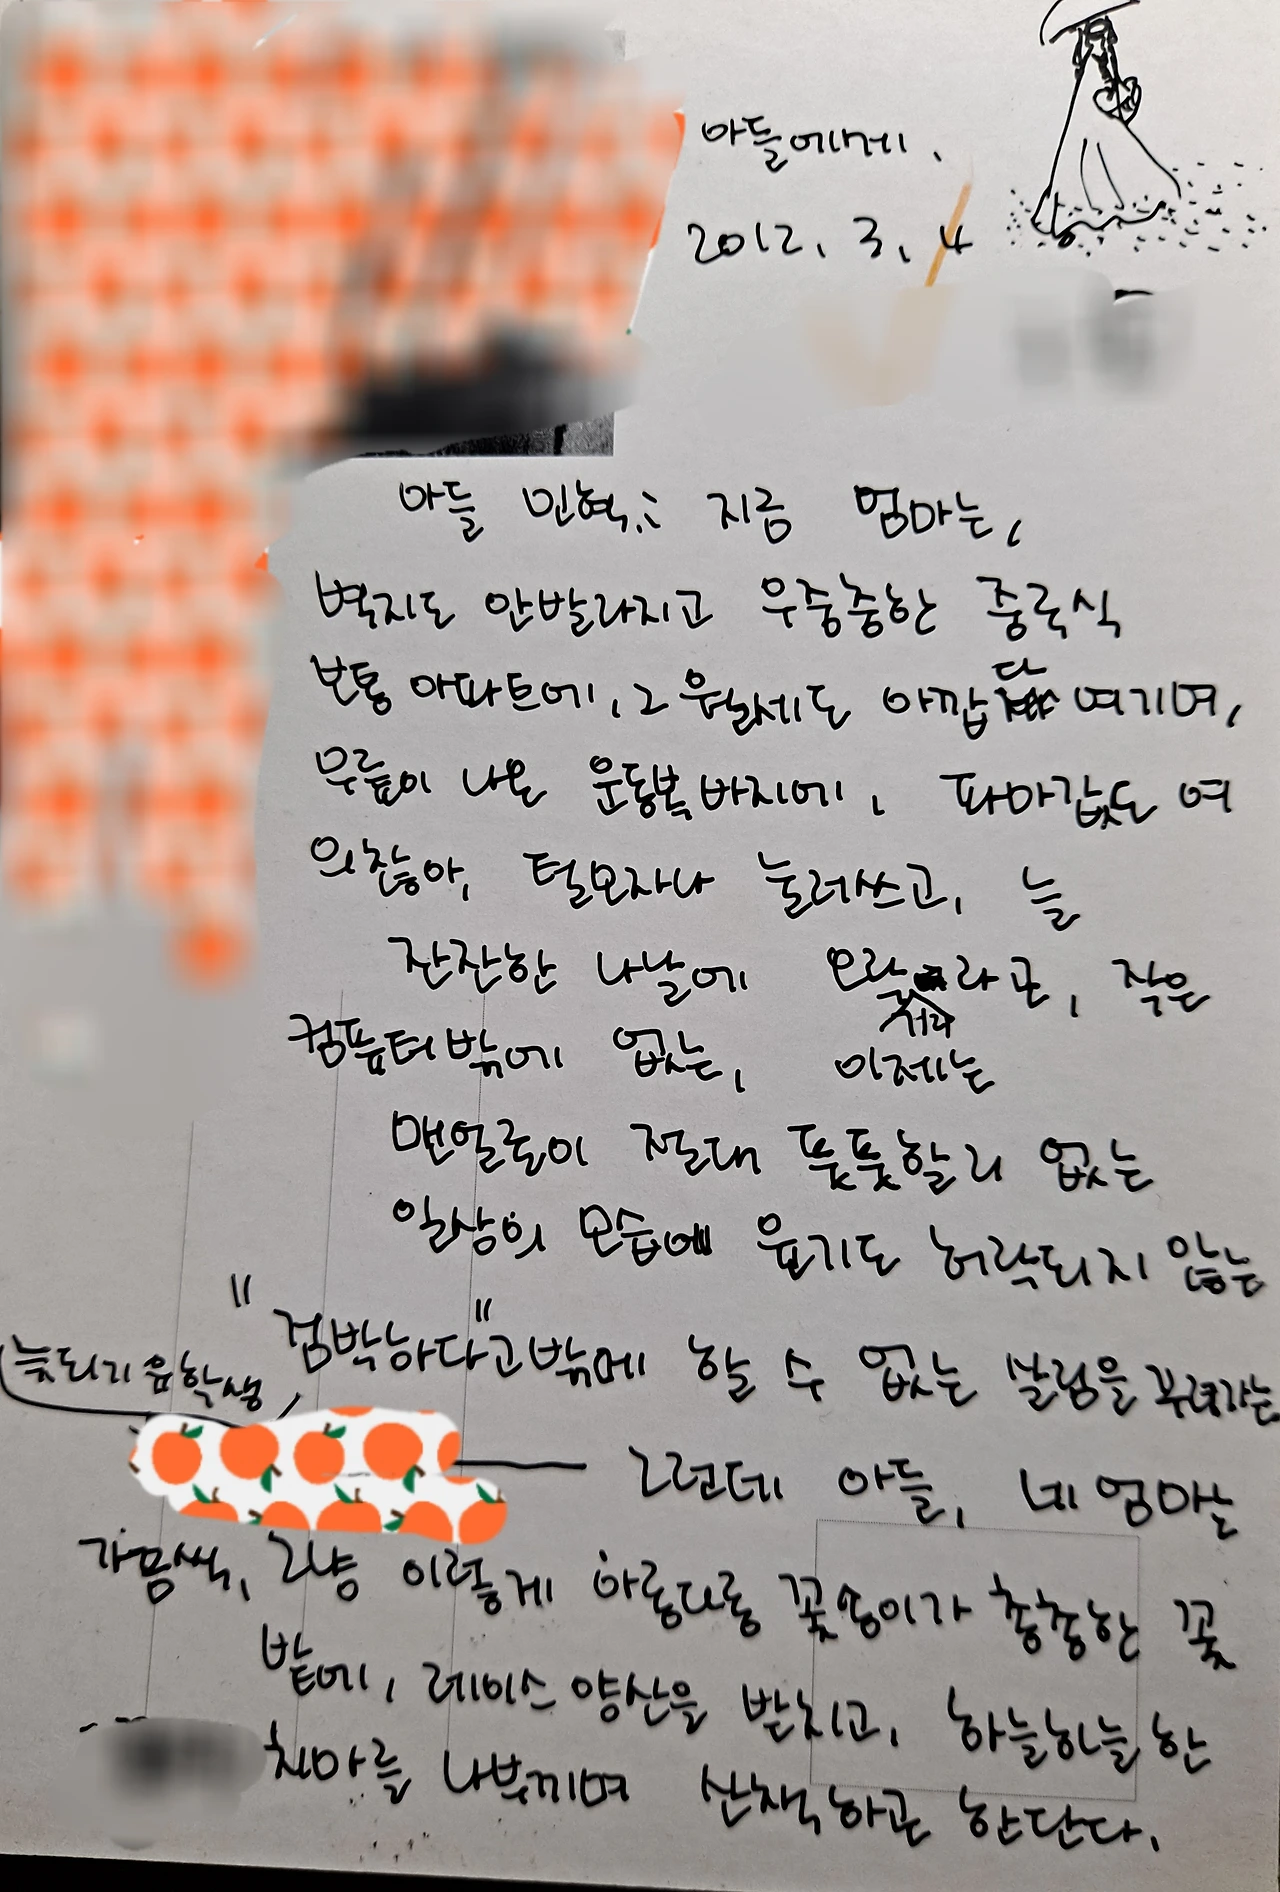 아들에게.
2012. 3. 4
아들 민혁. 지금 엄마는,
벽지도 안발라지고 우중충한 중국식
보통 아파트에, 그 월세도 아깝다 여기며,
무릎이 나온 운동복 바지에, 파마값도 여
의찮아, 털모자나 눌러쓰고, 늘
잔잔한 나날에 오락거리라곤, 작은
컴퓨터밖에 없는, 이제는
맨얼굴이 절대 풋풋할리 없는
일상의 모습에 윤기도 허락되지 않는
"검박하다"고밖에 할 수 없는 살림을 꾸려가는
늦되기 유학생
그런데 아들, 네 엄마는
가끔씩, 그냥 이렇게 아롱다롱 꽃송이가 총총한 꽃
밭에, 레이스 양산을 받치고, 하늘하늘한
치마를 나부끼며 산책하곤 한단다.